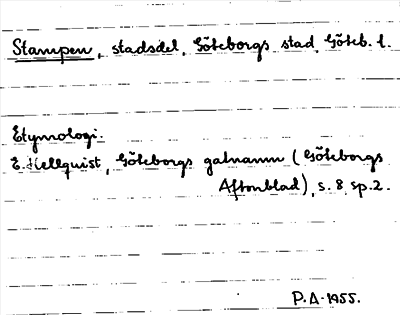 Stampen, stadsdel, Göteborgs stad, Göteb. l.
Etymologi.
E. Hellquist, Göteborgs gatnamn (Göteborgs
Aftonblad), s. 8, sp. 2.
P. A. 1955.